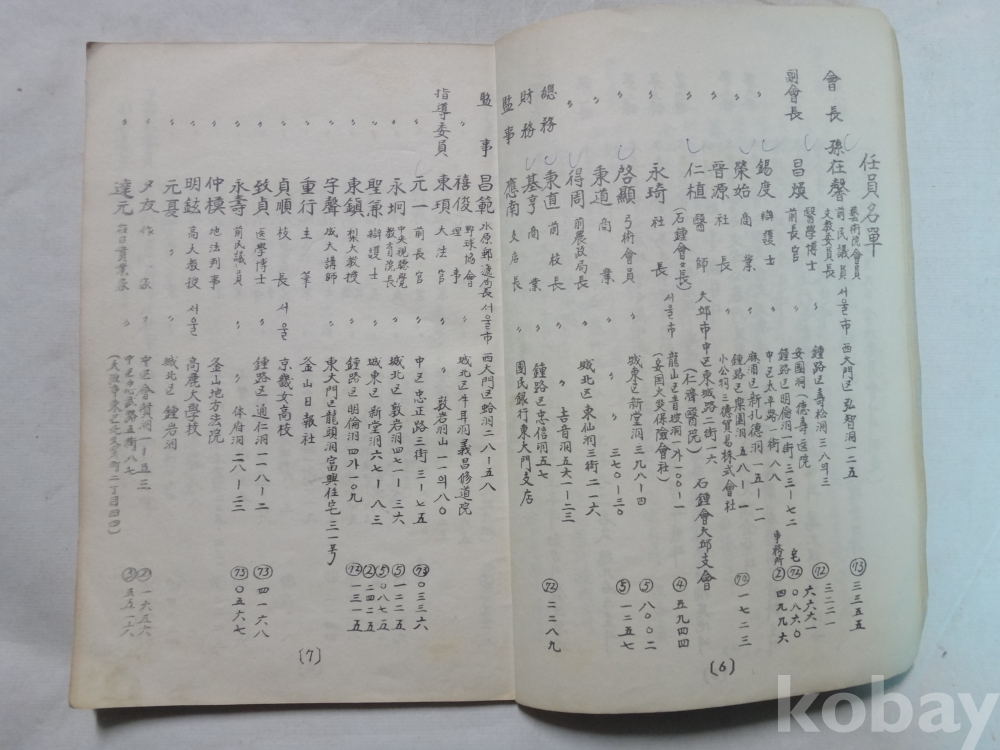 任員名單
會長 孫在馨 藝術院會員 前民議員 文敎委員長 서울市 西大門區 弘智洞 一二五 (73) 三三五五
副會長 〃 昌煐 醫學博士 〃 鍾路區 壽松洞 三八의三 (72) 三二二一
安國洞 (德壽醫院) 六六六一
〃 錫度 辯護士 〃
〃 榮始 商業 〃
〃 晉源 社長 〃 小公洞 三德貿易株式會社
〃 仁植 醫師 大邱市 中區 東城路 二街 一六 石鍾會大邱支會
(石鍾會々長) (仁濟醫院)
〃 永琦 社長 서울市 龍山區 靑坡洞 一가 一〇〇ー一 ④ 五九四四
(安国火災保險會社)
〃 啓顯 弓術會員 〃 城東區 新堂洞 三九八ー四 ⑤ 八〇〇二
〃 秉道 商業 〃 〃 三七〇ー三〇 ⑤ 一二五七
〃 得周 前農政局長 〃 城北區 東仙洞 三街 二一六
總務 秉直 前校長 〃 〃 士音洞 五六一ー二三
財務 基亨 商業 〃 鍾路區 忠信洞 五七
監事 應南 支店長 〃 國民銀行 東大門支店 (72) 二二八九
(6)
監事 昌範 水原郵遞局長 서울市 西大門區 蛤洞 二八ー五八
〃 禧俊 野球協會 理事 〃 城北區 牛耳洞 義昌修道院
指導委員 東頊 大法官 〃 〃 敦岩洞 山一一의八〇
〃 元一 前長官 〃 中區 忠正路 三街 三ー七五 (73) 〇三三六
〃 永坰 中央視聽覺敎育院長 〃 城北區 敦岩洞 四七一ー三六 ⑤ 一二二五
〃 聖兼 辯護士 〃 城東區 新堂洞 六七ー八三 ⑤ 〇八七五
② 二四二五
〃 東鎭 梨大敎授 〃 鍾路區 明倫洞 四가 一〇九 (72) 一三一五
〃 字聲 成大講師 〃 東大門區 龍頭洞 富興住宅 三一号
〃 重行 主筆 釜山日報社
〃 貞順 校長 서울 京畿女高校
〃 致貞 医學博士 〃 鍾路區 通仁洞 一一八ー二 (73) 四一六八
〃 永壽 前民議員 〃 〃 体府洞 二八ー三 (73) 〇五六七
〃 仲模 地法判事 釜山地方法院
〃 明鉉 高大敎授 서울 高麗大學校
〃 元 〃 城北區 鍾岩洞
〃 夕友 作家 〃 中區 會賢洞 一ー五三 ② 一六五六
〃 達元 在日實業家 〃